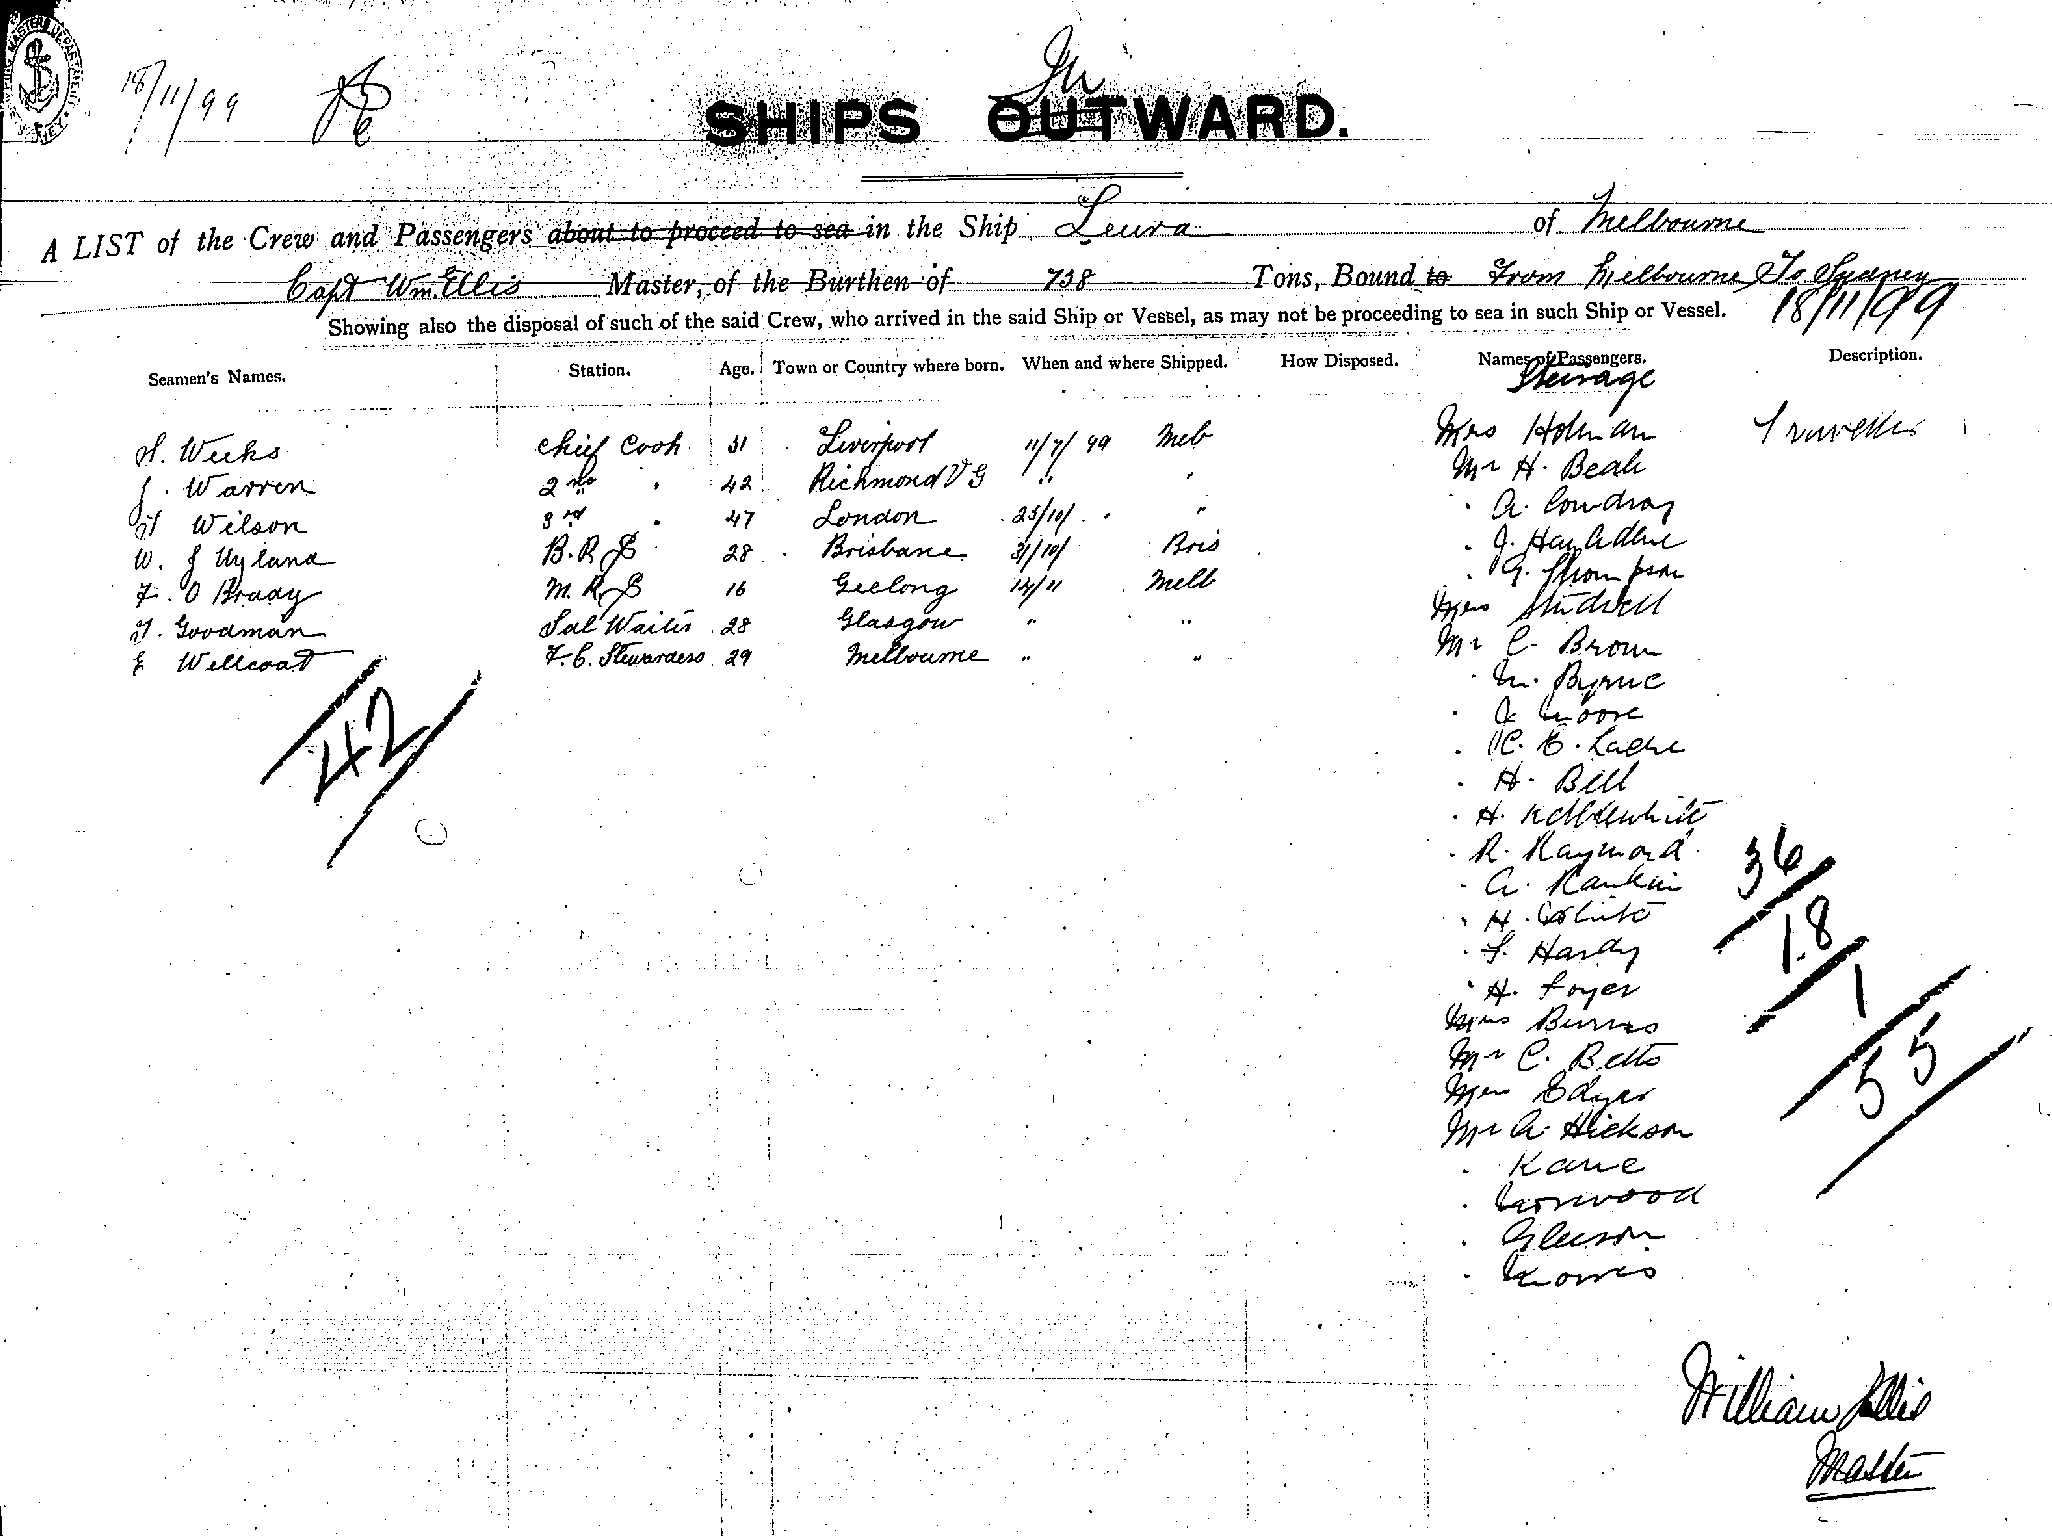 18/11/99
In
SHIPS OUTWARD.
A LIST of the Crew and Passengers about to proceed to sea in the Ship Leura of Melbourne
Capt Wm Ellis Master, of the Burthen of 738 Tons, Bound to From Melbourne To Sydney
18/11/99
Showing also the disposal of such of the said Crew, who arrived in the said Ship or Vessel, as may not be proceeding to sea in such Ship or Vessel.
Seamen's Names. Station. Age. Town or Country where born. When and where Shipped. How Disposed. Names of Passengers. Description.
Steerage
H. Weeks Chief Cook 31 Liverpool 11/7/99 Melb Mrs Holman Traveller
J. Warren 2nd " 42 Richmond V G " " Mr H. Beale
H Wilson 3rd " 47 London 23/10/ " " " A. Cowdray
W. J Hyland B. R. S 28 Brisbane 31/10/ Bris " J.
F. O Brady M. R. S 16 Geelong 14/11 Melb " G. Thompson
H. Goodman Sal Waiter 28 Glasgow " " Mrs Studwell
E Wellcoat F. C. Stewardess 29 Melbourne " " Mr C. Brown
" M. Byrne
42
" J Moore
" C. E.
" H. Bell
" H.
" R. Raymond
36
" A. Rankin
" H. White
18
" F. Hardy
" H. Foyer
1
Mrs Burns
Mr C. Betts
55
Mrs Edgar
Mr A. Hickson
" Kane
" Norwood
" Gleeson
" Morris
William Ellis
Master